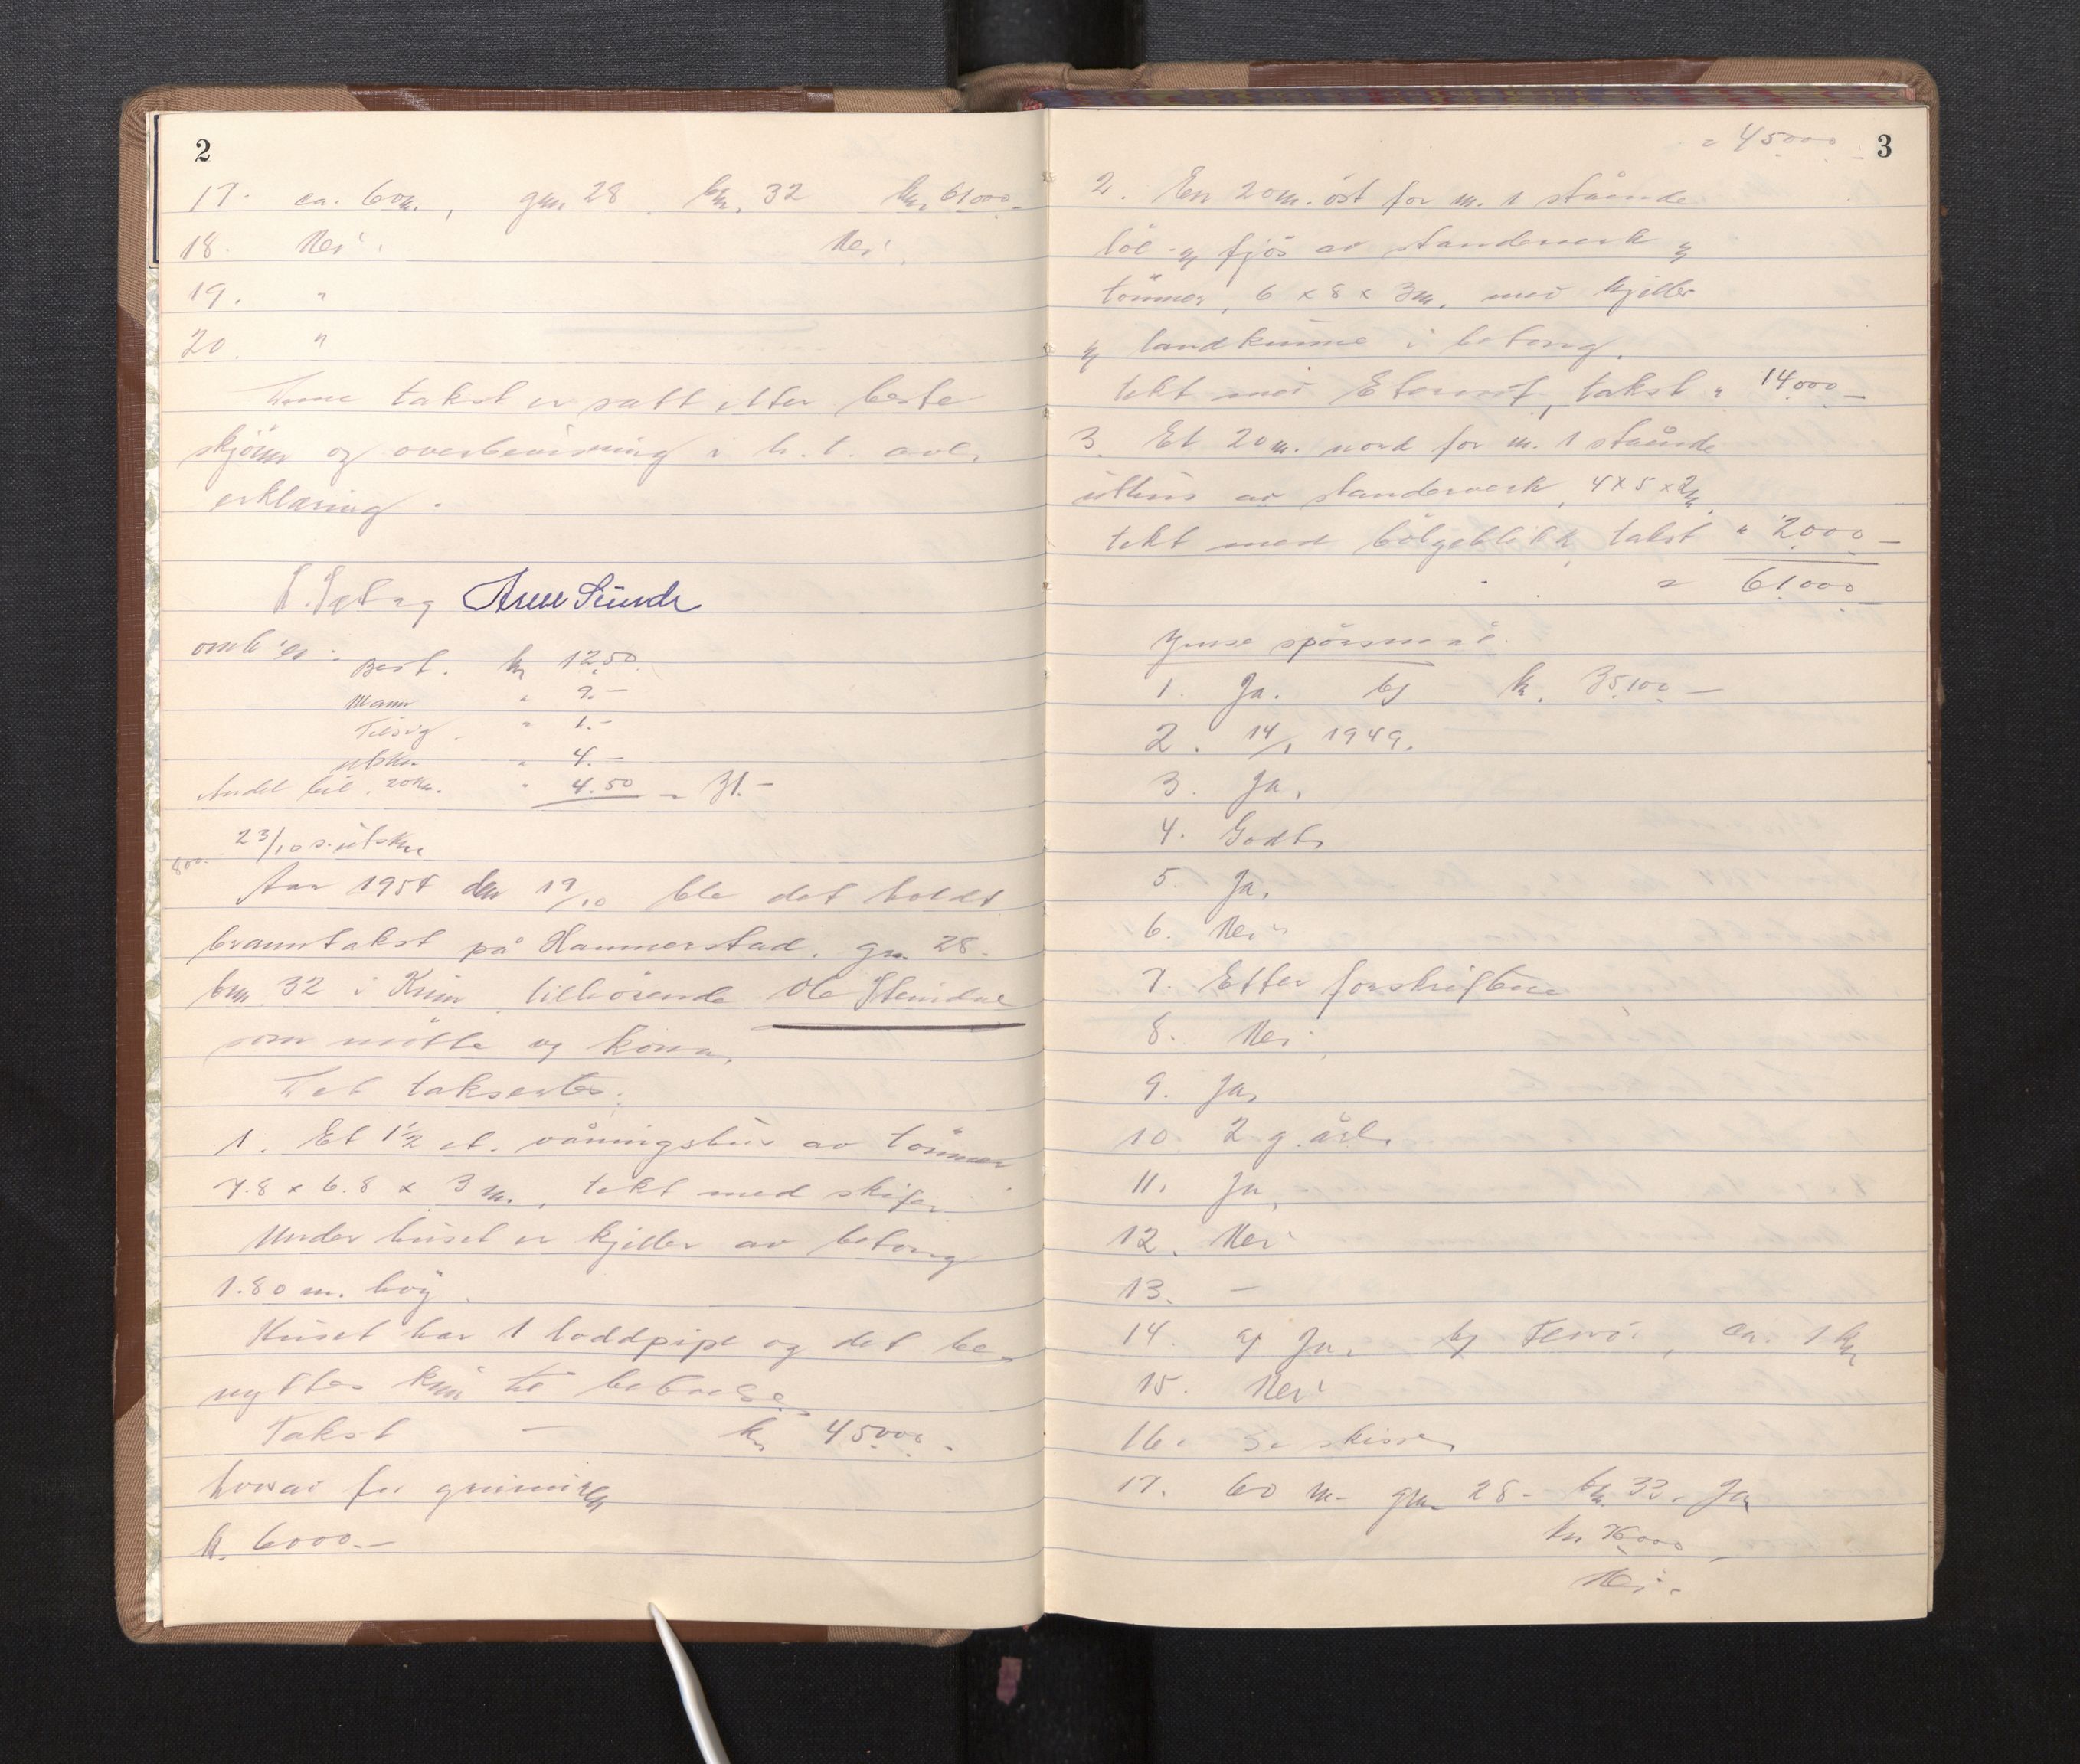 2
17. ca. 60 m., gnr. 28 bnr. 32 kr. 61.000.-
18. Nei. Nei.
19. "
20. "
Denne takst er satt etter beste
skjönn og overbevisning i h. t. avl.
erklæring.
Arne Sunde
omk.
Best. kr 12.50
Mann " 9.-
Tilsig. " 1.-
utskr. " 4.-
Andel bil. 20 km. " 4.50 = 31.-
23/10 s. utskr
800.-
Aar 1954 den 19/10 ble det holdt
branntakst på Hammerstad, gnr. 28
bnr. 32 i Kinn tilhörende Ole Steindal
som mötte og konn.
Det taksertes:
1. Et 1½ et. våningshus av tömmer
7.8 x 6.8 x 3 m., tekt med skifer.
Under huset er kjeller av betong
1.80 m. höy.
Huset har 1 loddpipe og det be-
nyttes kun til beboelse.
Takst - kr. 45.000.-
herav for grunnmuren
kr. 6000.-
3
= 45.000.-
2. En 20 m. öst for nr. 1 stående
löe og fjös av standerverk og
tömmer, 6 x 8 x 3 m. med kjeller
og landkumme i betong.
tekt med Eternit, takst " 14.000.-
3. Et 20 m. nord for nr. 1 stående
uthus av standerverk, 4 x 5 x 2 m.
tekt med bölgeblikk takst " 2.000.-
= 61.000.-
Ymse spörsmål.
1. Ja. b) kr. 35.100.-
2. 14/1 1949.
3. Ja.
4. Godt.
5. Ja.
6. Nei
7. Etter forskriftene
8. Nei
9. Ja.
10. 2 g. årl.
11. Ja.
12. Nei
13. -
14. a) Ja. b) , ca. 1 km
15. Nei
16. Se skisse.
17. 60 m. gnr. 28 - bnr. 33. Ja
kr. 76.000
Nei.